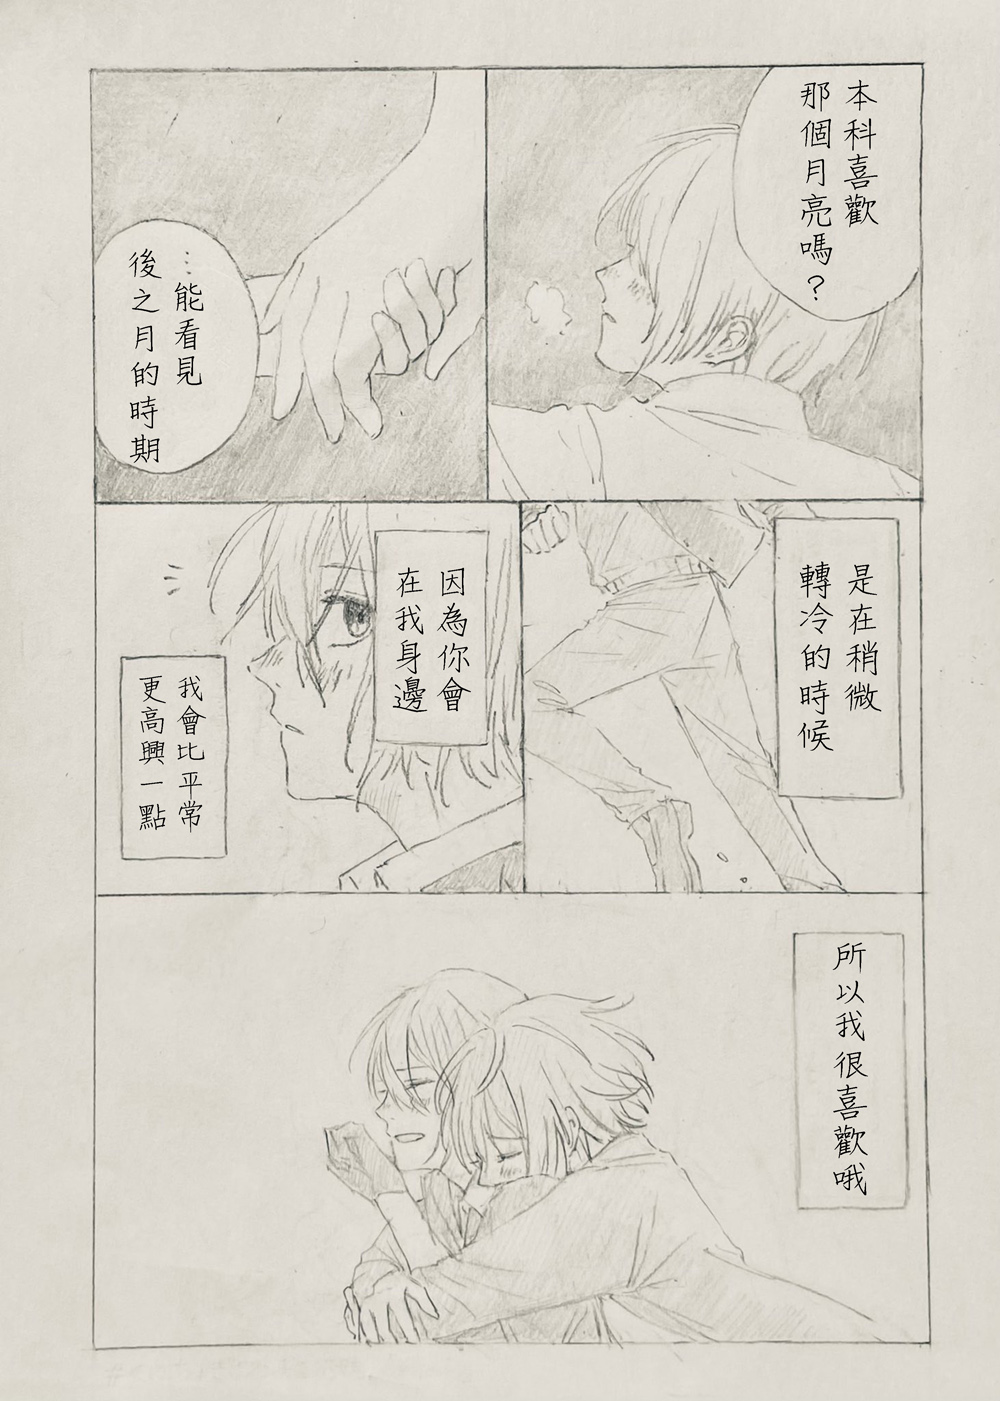 本科喜歡
那個月亮嗎？
…能看見
後之月的時期
是在稍微
轉冷的時候
因為你會
在我身邊
我會比平常
更高興一點
所以我很喜歡哦